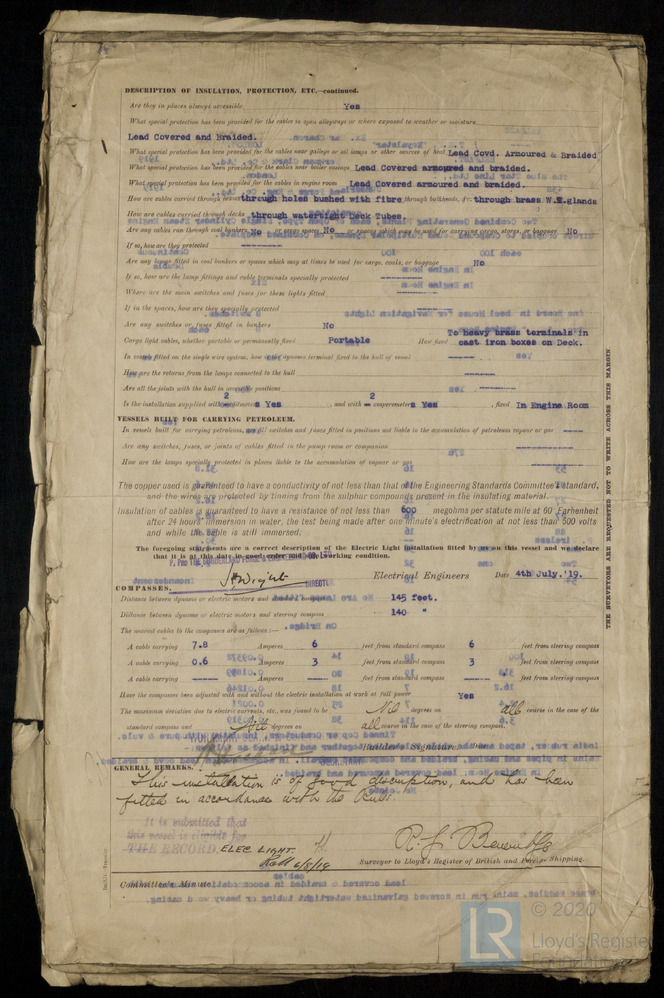 DESCRIPTION OF INSULATION, PROTECTION, ETC.—continued.
Are they in places always accessible Yes
What special protection has been provided for the cables in open alleyways or where exposed to weather or moisture
Lead Covered and Braided.
What special protection has been provided for the cables near galleys or oil lamps or other sources of heat Lead Covd. Armoured & Braided
What special protection has been provided for the cables near boiler casings Lead Covered armoured and braided.
What special protection has been provided for the cables in engine room Lead Covered armoured and braided.
How are cables carried through beams through holes bushed with fibre through bulkheads, &c. through brass W.T.glands
How are cables carried through decks through watertight Deck Tubes.
Are any cables run through coal bunkers No or cargo spaces No or spaces which may be used for carrying cargo, stores, or baggage No
If so, how are they protected
Are any lamps fitted in coal bunkers or spaces which may at times be used for cargo, coals, or baggage No
If so, how are the lamp fittings and cable terminals specially protected
Where are the main switches and fuses for these lights fitted
If in the spaces, how are they specially protected
Are any switches or fuses fitted in bunkers No
Cargo light cables, whether portable or permanently fixed Portable How fixed To heavy brass terminals in cast iron boxes on Deck.
In vessels fitted on the single wire system, how is the dynamo terminal fixed to the hull of vessel
How are the returns from the lamps connected to the hull
Are all the joints with the hull in accessible positions
Is the installation supplied with 2 voltmeters Yes, and with 2 amperemeters Yes, fixed In Engine Room
VESSELS BUILT FOR CARRYING PETROLEUM.
In vessels built for carrying petroleum, are all switches and fuses fitted in positions not liable to the accumulation of petroleum vapour or gas
Are any switches, fuses, or joints of cables fitted in the pump room or companion
How are the lamps specially protected in places liable to the accumulation of vapour or gas
The copper used is guaranteed to have a conductivity of not less than that of the Engineering Standards Committee's standard,
and the wires are protected by tinning from the sulphur compounds present in the insulating material.
Insulation of cables is guaranteed to have a resistance of not less than 600 megohms per statute mile at 60° Farhenheit
after 24 hours' immersion in water, the test being made after one minute's electrification at not less than 500 volts
and while the cable is still immersed.
The foregoing statements are a correct description of the Electric Light installation fitted by us on this vessel and we declare
that it is at this date in good order and safe working condition.
DIRECTOR
Electrical Engineers Date 4th July.'19.
COMPASSES.
Distance between dynamo or electric motors and standard compass 145 feet.
Distance between dynamo or electric motors and steering compass 140 "
The nearest cables to the compasses are as follows:—
A cable carrying 7.8 Amperes 6 feet from standard compass 6 feet from steering compass
A cable carrying 0.6 Amperes 3 feet from standard compass 3 feet from steering compass
A cable carrying Amperes feet from standard compass feet from steering compass
Have the compasses been adjusted with and without the electric installation at work at full power Yes
The maximum deviation due to electric currents, etc., was found to be Nil degrees on all course in the case of the
standard compass and Nil degrees on all course in the case of the steering compass.
Builder's Signature.
GENERAL REMARKS.
This installation is of good description, and has been
fitted in accordance with the Rules.
It is submitted that
this vessel is eligible for
THE RECORD. ELEC LIGHT.
6/8/19
Surveyor to Lloyd's Register of British and Foreign Shipping.
Committee's Minute
THE SURVEYORS ARE REQUESTED NOT TO WRITE ACROSS THIS MARGIN
LR
© 2020
Lloyd's Register
Foundation